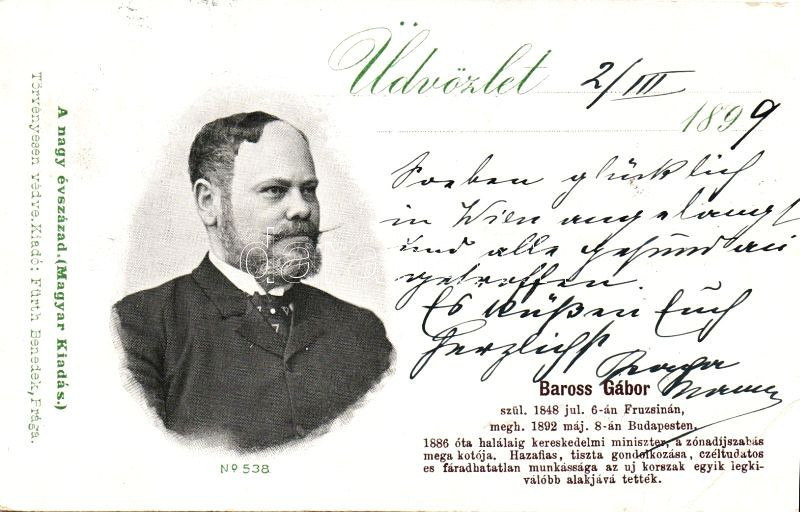 Üdvözlet 2/III
1899
Soeben glücklich
in Wien angelangt
und alle gesund an
getroffen.
Es küßen Euch
herzlichst
Baross Gábor
szül. 1848 jul. 6-án Fruzsinán,
megh. 1892 máj. 8-án Budapesten.
1886 óta halálaig kereskedelmi miniszter, a zónadíjszabás
mega kotója. Hazafias, tiszta gondolkozása, czéltudatos
es fáradhatatlan munkássága az uj korszak egyik legki-
válóbb alakjává tették.
A nagy évszázad.(Magyar Kiadás.)
Törvényesen védve.Kiadó: Fürth Benedek, Prága.
№ 538